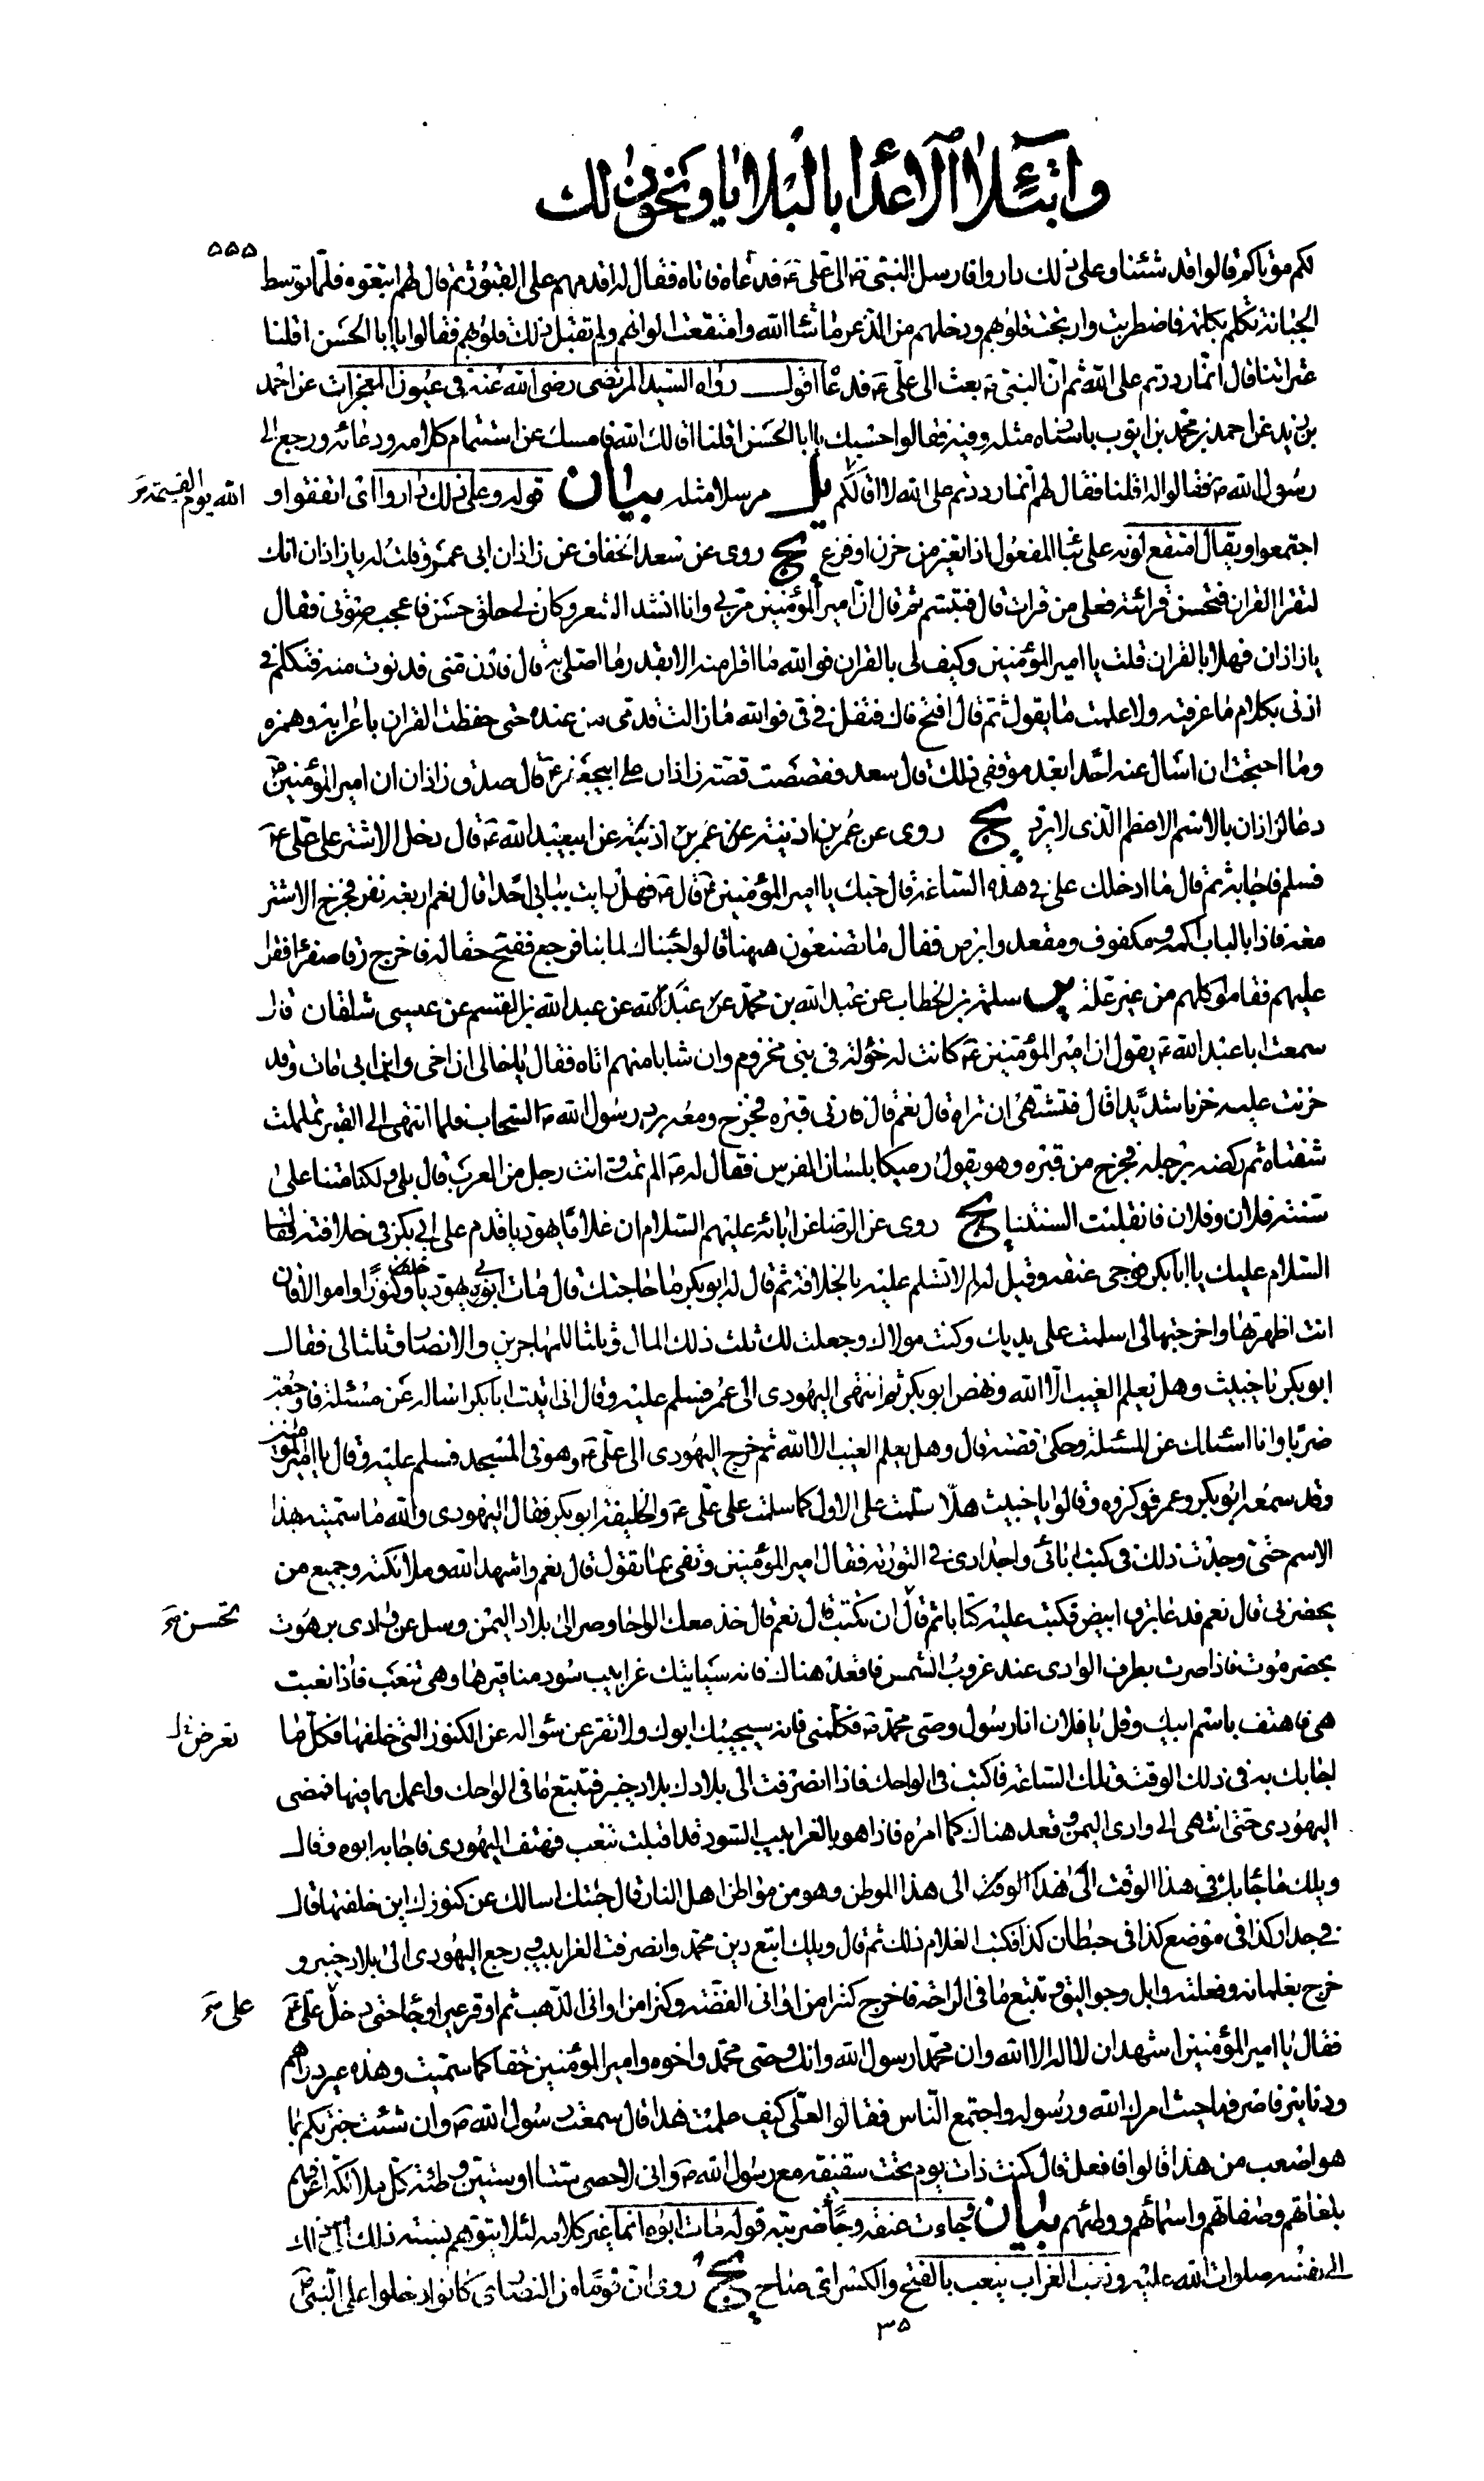 وابتلاء الاعداء بالبلايا ونحو ذلك
۵۵۵
لكم موتاكم قالوا قد شئنا وعلى ذلك داروا فارسل النبي ص الى علي ع فدعاه فاتاه فقال له اقدمهم على القبور ثم قال لهم اتبعوه فلما توسط
الجبانة تكلم بكلمة فاضطربت وارتجت قلوبهم ودخلهم من الذعر ما شاء الله وامتقعت الوانهم ولم تقبل ذلك قلوبهم فقالوا يا ابا الحسن اقلنا
عثراتنا قال انما رددتم على الله ثم ان النبي ص بعث الى علي ع فدعا اقول رواه السيد المرتضى رضي الله عنه في عيون المعجزات عن احمد
بن زيد عن احمد بن محمد بن ايوب باسناده مثله وفيه فقالوا حسبك يا ابا الحسن اقلنا اقالك الله فامسك عن استتمام كلامه ودعائه ورجع الى
رسول الله ص فقالوا له اقلنا فقال لهم انما رددتم على الله لا اقالكم الله يوم القيمة يل مرسلا مثله بيان قوله وعلى ذلك داروا اي اتفقوا و
اجتمعوا ويقال امتقع لونه على بناء المفعول اذا تغير من حزن او فزع يج روى عن سعد الخفاف عن زاذان ابي عمرو قلت له يا زاذان انك
لتقرا القران فتحسن قرائته فعلى من قرات قال فتبسم ثم قال ان امير المؤمنين مر بي وانا انشد الشعر وكان لي حلق حسن فاعجبه صوتي فقال
يا زاذان فهلا بالقران قلت يا امير المؤمنين وكيف لي بالقران فوالله ما اقرا منه الا بقدر ما اصلي به قال فادن مني فدنوت منه فتكلم في
اذني بكلام ما عرفته ولا علمت ما يقول ثم قال افتح فاك فتفل في في فوالله ما زالت قدمي من عنده حتى حفظت القران باعرابه وهمزه
وما احتجت ان اسال عنه احدا بعد موقفي ذلك قال سعد فقصصت قصة زاذان على ابي جعفر ع قال صدق زاذان ان امير المؤمنين ع
دعا لزاذان بالاسم الاعظم الذي لا يرد يج روى عن عمر بن اذينة عن ابي عبد الله ع قال دخل الاشتر على علي ع
فسلم فاجابه ثم قال ما ادخلك علي في هذه الساعة قال حبك يا امير المؤمنين ع قال ع فهل رايت ببابي احدا قال نعم اربعة نفر فخرج الاشتر
معه فاذا بالباب اكمه ومكفوف ومقعد وابرص فقال ما تصنعون ههنا قالوا جئناك لما بنا فرجع ففتح حقا له فاخرج رقا صفرا فقرا
عليهم فقاموا كلهم من غير علة ير سلمة بن الخطاب عن عبد الله بن محمد عن عبد الله بن القسم عن عيسى شلقان قال
سمعت ابا عبد الله ع يقول ان امير المؤمنين ع كانت له خؤلة في بني مخزوم وان شابا منهم اتاه فقال يا خالي ان اخي وابن ابي مات وقد
حزنت عليه حزنا شديدا قال فتشتهي ان تراه قال نعم قال فارني قبره فخرج ومعه برد رسول الله ص السحاب فلما انتهى الى القبر تململت
شفتاه ثم ركضه برجله فخرج من قبره وهو يقول رميكا بلسان الفرس فقال له ع الم تمت وانت رجل من العرب قال بلى ولكنا متنا على
سنة فلان وفلان فانقلبت السنتنا يج روى عن الرضا عن ابائه عليهم السلام ان غلاما يهوديا قدم على ابي بكر في خلافته فقا
السلام عليك يا ابا بكر فوجئ عنقه وقيل له لم لا تسلم عليه بالخلافة ثم قال له ابو بكر ما حاجتك قال مات ابي يهوديا وخلف كنوزا واموالا فان
انت اظهرتها واخرجتها الي اسلمت على يديك وكنت مولاك وجعلت لك ثلث ذلك المال وثلثا للمهاجرين والانصار وثلثا لي فقال
ابو بكر يا خبيث وهل يعلم الغيب الا الله ونهض ابو بكر ثم انتهى اليهودي الى عمر فسلم عليه وقال اني اتيت ابا بكر اساله عن مسئلة فاوجعت
ضربا وانا اسئلك عن المسئلة وحكى قصته قال وهل يعلم الغيب الا الله ثم خرج اليهودي الى علي ع وهو في المسجد فسلم عليه وقال يا امير المؤمنين
وقد سمعه ابو بكر وعمر فوكزوه وقالوا يا خبيث هلا سلمت على الاول كما سلمت على علي ع والخليفة ابو بكر فقال اليهودي والله ما سميته بهذا
الاسم حتى وجدت ذلك في كتب ابائي واجدادي في التورية فقال امير المؤمنين وتفي بما تقول قال نعم واشهد الله وملائكته وجميع من
يحضرني قال نعم فدعا برق ابيض فكتب عليه كتابا ثم قال تحسن ان تكتب قال نعم قال خذ معك الواحا وصر الى بلاد اليمن وسل عن وادي برهوت
بحضرموت فاذا صرت بطرف الوادي عند غروب الشمس فاقعد هناك فانه سياتيك غرابيب سود مناقيرها وهي تنعب فاذا نعبت
هي فاهتف باسم ابيك وقل يا فلان انا رسول وصي محمد ص فكلمني فانه سيجيبك ابوك ولا تفتر عن سؤاله عن الكنوز التي خلفها فكل ما
اجابك به في ذلك الوقت وتلك الساعة فاكتبه في الواحك فاذا انصرفت الى بلادك بلاد خيبر فتتبع ما في الواحك واعمل بما فيها فمضى
اليهودي حتى انتهى الى وادي اليمن وقعد هناك كما امره فاذا هو بالغرابيب السود قد اقبلت تنعب فهتف اليهودي فاجابه ابوه وقال
ويلك ما جاء بك في هذا الوقت الى هذا الموطن وهو من مواطن اهل النار قال جئتك اسالك عن كنوزك اين خلفتها قال
في جدار كذا في موضع كذا في حيطان كذا فكتب الغلام ذلك ثم قال ويلك اتبع دين محمد وانصرفت الغرابيب ورجع اليهودي الى بلاد خيبر و
خرج بغلمانه وفعلته وابل وجواليق وتتبع ما في الواحه فاخرج كنزا من اواني الفضة وكنزا من اواني الذهب ثم اوقر عيرا وجاء حتى دخل على علي ع
فقال يا امير المؤمنين اشهد ان لا اله الا الله وان محمدا رسول الله وانك وصي محمد واخوه وامير المؤمنين حقا كما سميت وهذه عير دراهم
ودنانير فاصرفها حيث امرك الله ورسوله واجتمع الناس فقالوا لعلي كيف علمت هذا قال سمعت رسول الله ص وان شئت خبرتكم بما
هو اصعب من هذا قالوا فافعل قال كنت ذات يوم تحت سقيفة مع رسول الله ص واني لاحصي ستا وستين وطئة كل ملائكة اعرفهم
بلغاتهم وصفاتهم واسمائهم ووطئهم بيان وجاءت عنقه وجأ ضربته قوله مات ابوه انما غير كلامه لئلا يتوهم نسبة ذلك
الى نفسه صلوات الله عليه ونعب الغراب ينعب بالفتح والكسر اي صاح يج روى ان قوما من النصارى كانوا دخلوا على النبي ص
۳۵